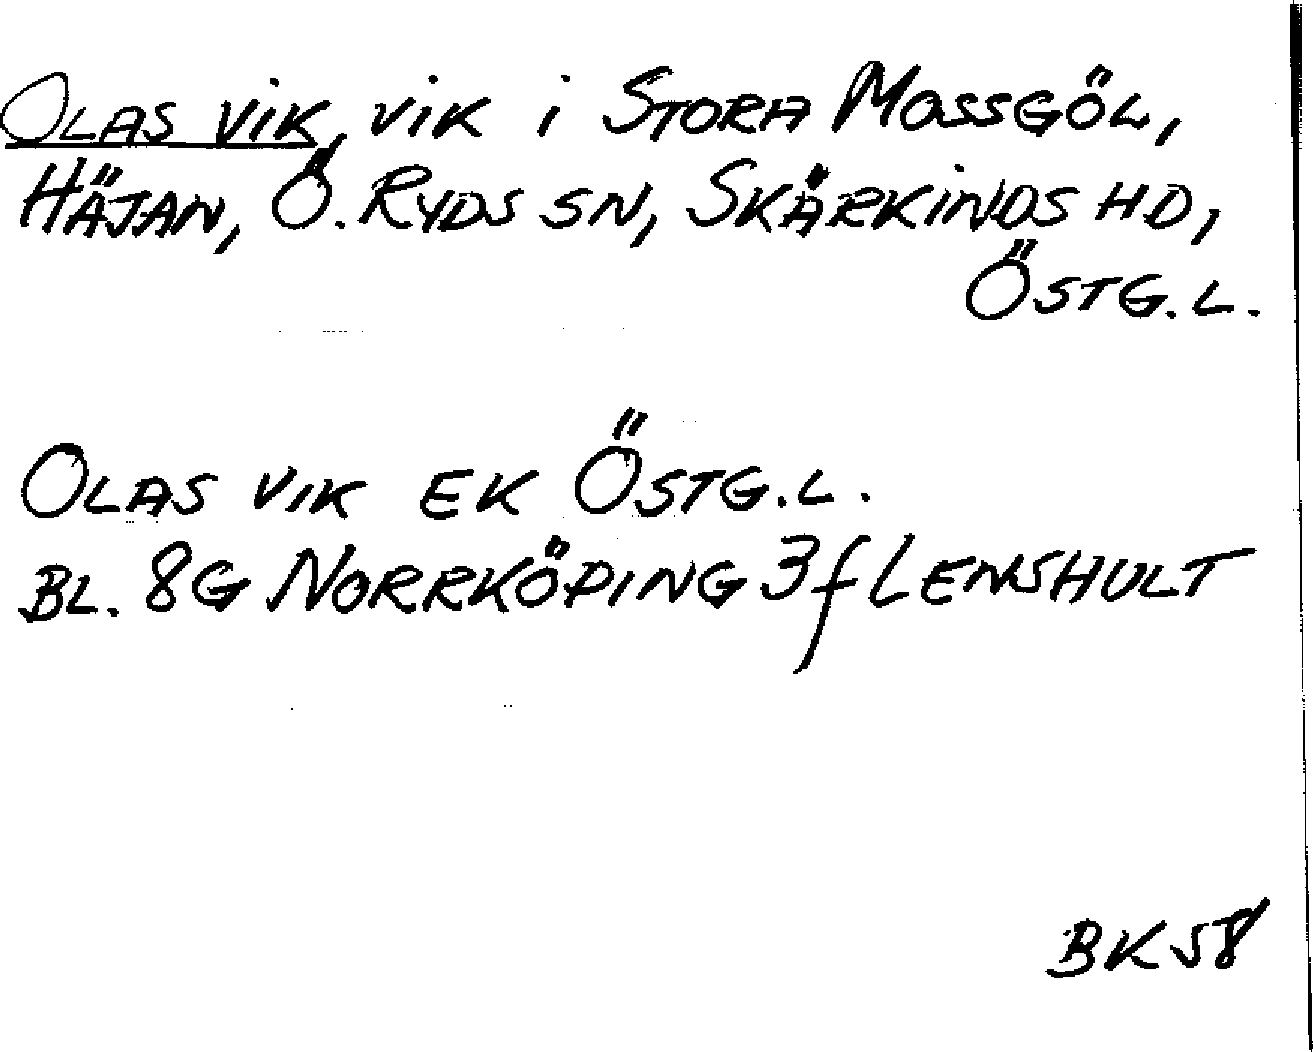 OLAS VIK, VIK i STORA MOSSGÖL,
HÄJAN, Ö. RYDS SN, SKÄRKINDS HD,
ÖSTG. L.
OLAS VIK EK ÖSTG. L.
BL. 8G NORRKÖPING 3f LENSHULT
BK 58